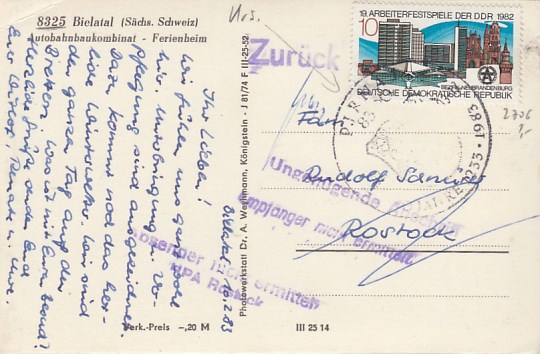 8325 Bielatal (Sächs. Schweiz)
Autobahnbaukombinat - Ferienheim
Bielatal, 10.2.83
Ihr Lieben!
Wir fühlen uns ganz wohl
hier. Unterbringung u. Ver-
pflegung sind ausgezeichnet.
Dazu kommt noch das her-
liche Winterwetter. Wir sind
den ganzen Tag auf den
Brettern. Was ist mit Euren
Herzliche Grüße senden Euch
Eure
Renate u. Uwe.
Verk.-Preis -,20 M
III 25 14
Photowerkstatt Dr. A. Werthmann, Königstein · J 81/74 F III-25-52
Zurück
19. ARBEITERFESTSPIELE DER DDR 1982
10
BEZIRK NEUBRANDENBURG
DEUTSCHE DEMOKRATISCHE REPUBLIK
PIRNA
83
1983
JAHRE 1233
Fam.
Rudolf
Rostock
Ungenügende Anschrift
Empfänger nicht ermittelt
Absender nicht ermittelt
HPA Rostock